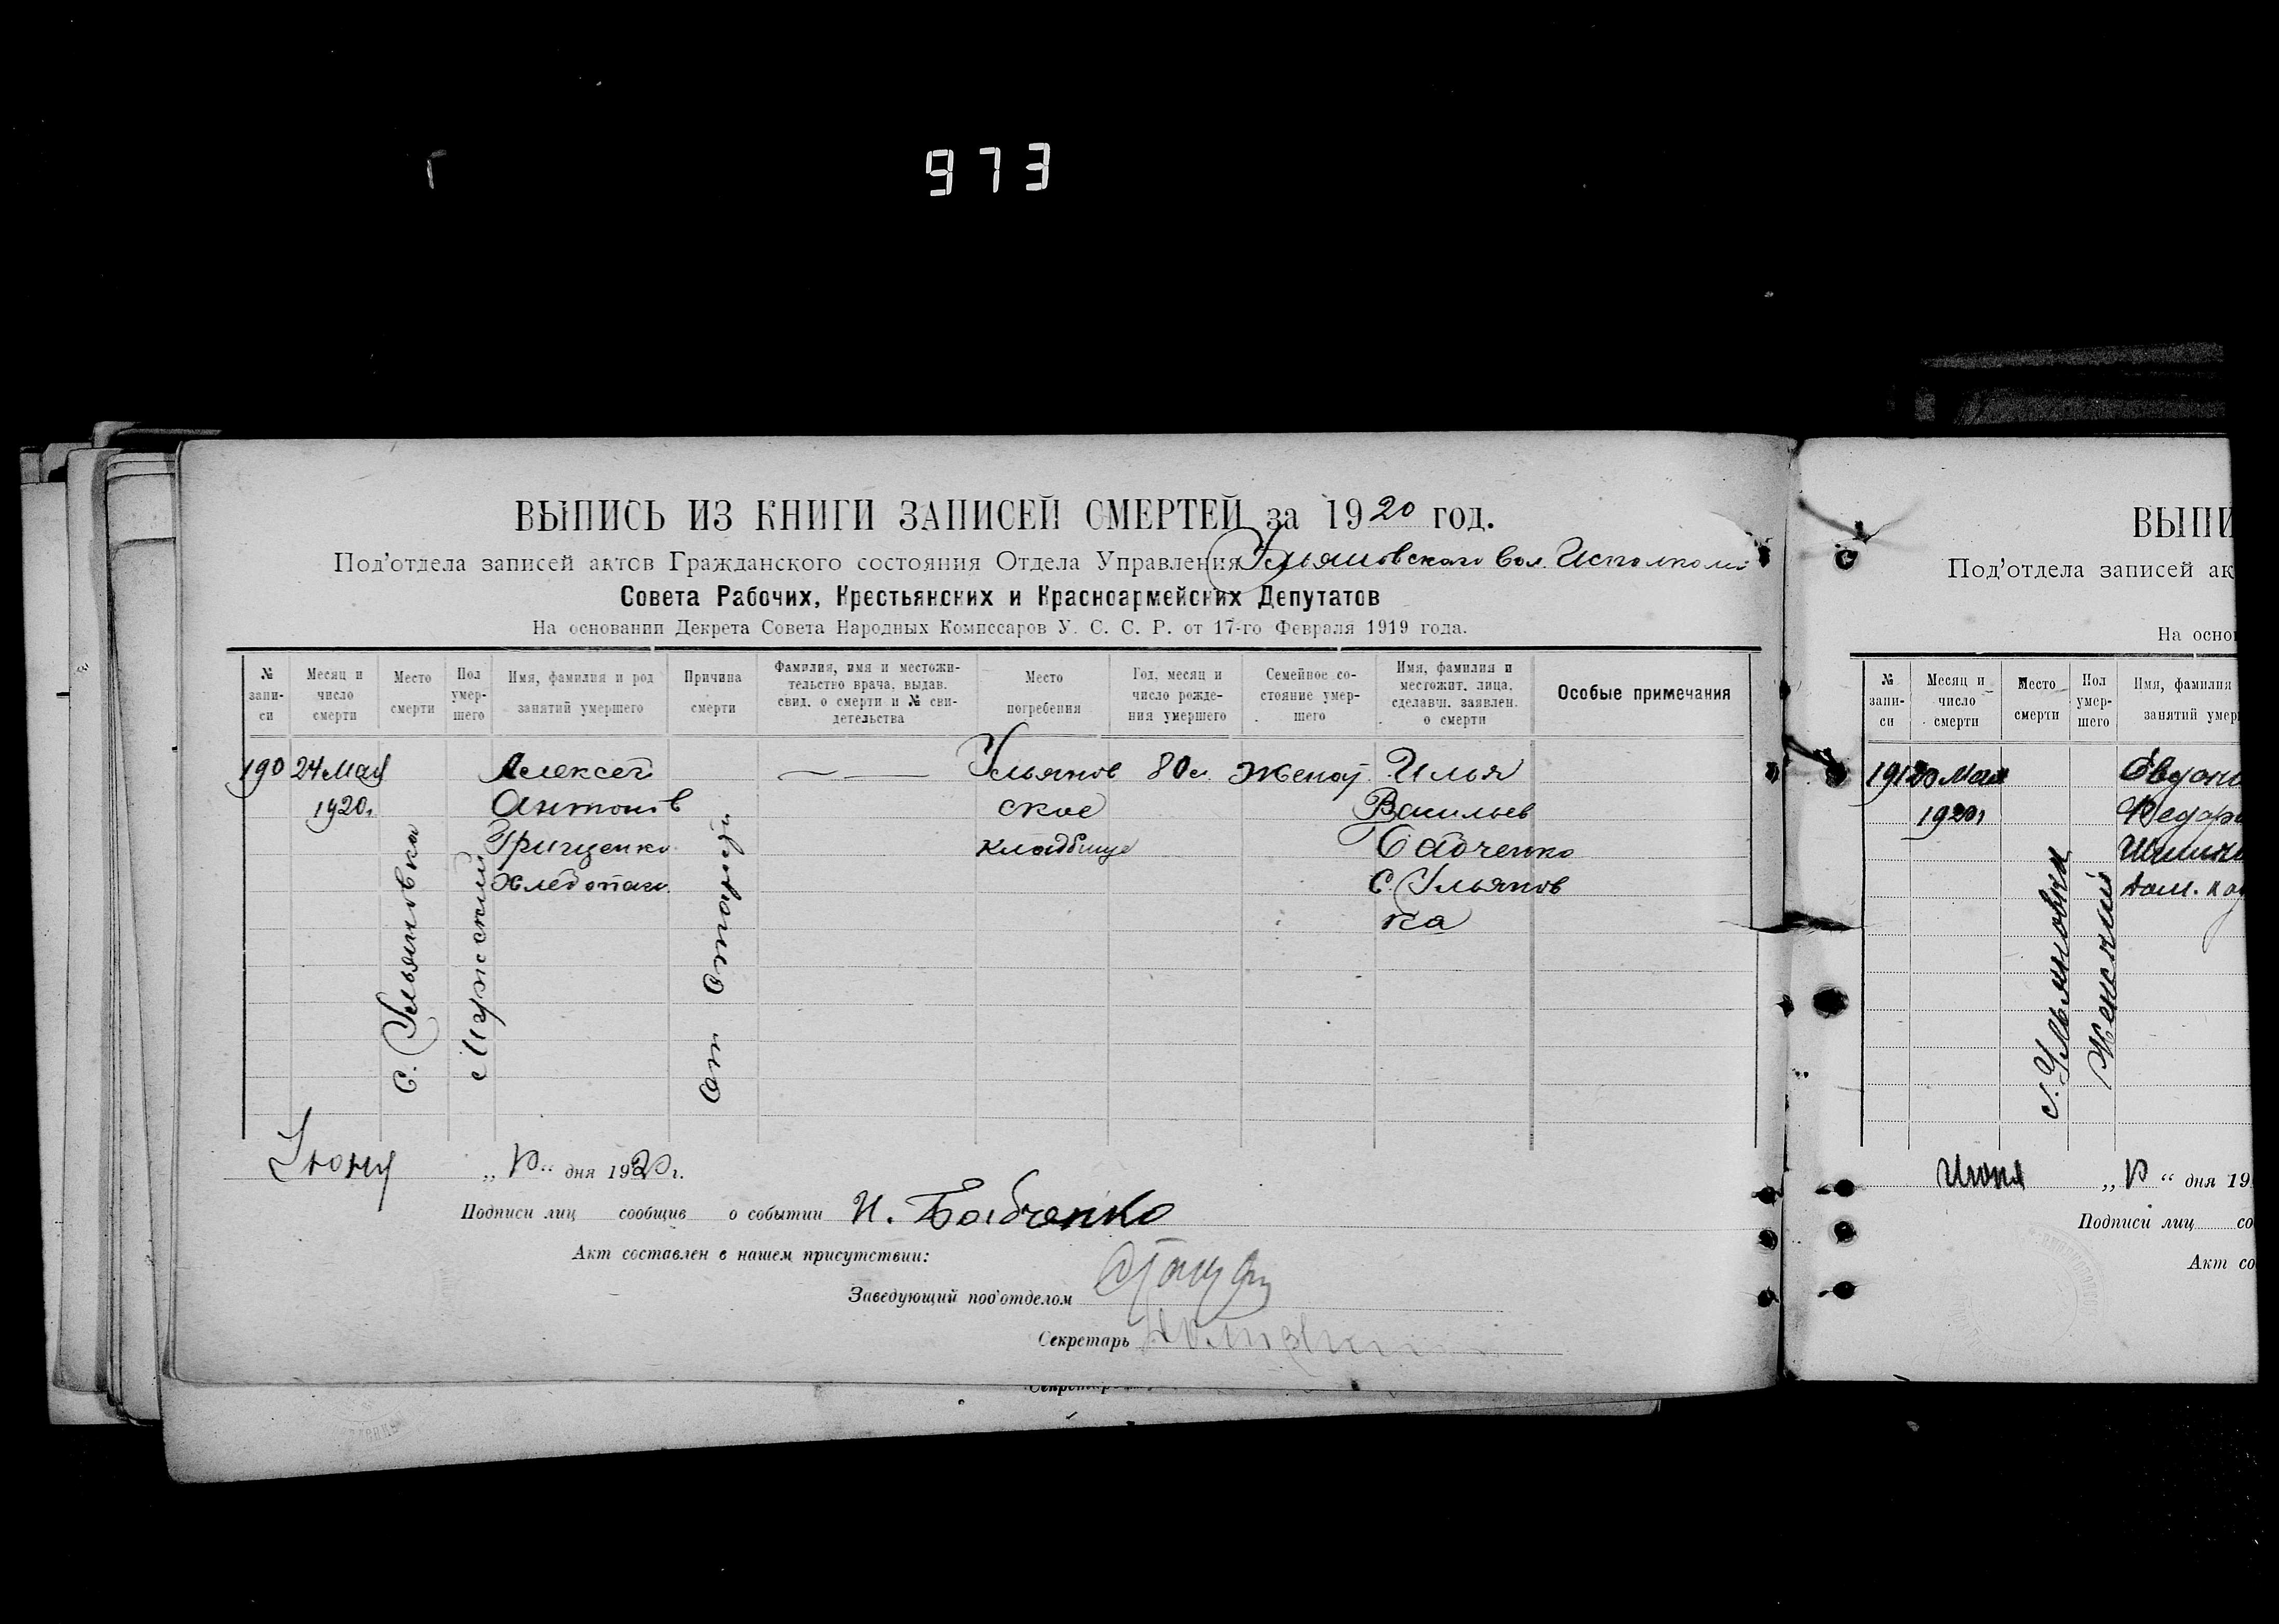 973
ВЫПИСЬ ИЗ КНИГИ ЗАПИСЕЙ СМЕРТЕЙ за 1920 год.
Под'отдела записей актов Гражданского состояния Отдела Управления Ульяновского Вол. Исполкома
Совета Рабочих, Крестьянских и Красноармейских Депутатов
На основании Декрета Совета Народных Комиссаров У. С. С. Р. от 17-го Февраля 1919 года.
№ запи-си
Месяц и число смерти
Место смерти
Пол умер-шего
Имя, фамилия и род занятий умершего
Причина смерти
Фамилия, имя и местожи-тельство врача, выдав. свид. о смерти и № сви-детельства
Место погребения
Год, месяц и число рожде-ния умершего
Семейное со-стояние умер-шего
Имя, фамилия и местожит. лица, сделавш. заявлен. о смерти
Особые примечания
190
24 Мая
1920г
С. Ульяновка
Мужеский
Алексей
Антонов
Грищенко
Хлебопаш.
От
Ульянов
ское
кладбище
80 л
Женат
Илья
Васильев
Бабченко
С. Ульянов
ка
Июня „10“ дня 1920 г.
Подписи лиц сообщив о событии И. Бабченко
Акт составлен в нашем присутствии:
Заведующий под'отделом
Секретарь
ВЫПИ
Под'отдела записей ак
На осно
№ запи-си
Месяц и число смерти
Место смерти
Пол умер-шего
Имя, фамилия
занятий умер
191
Мая
1920г
с. Ульяновка
Женский
Июня „10“ дня 19
Подписи лиц со
Акт со